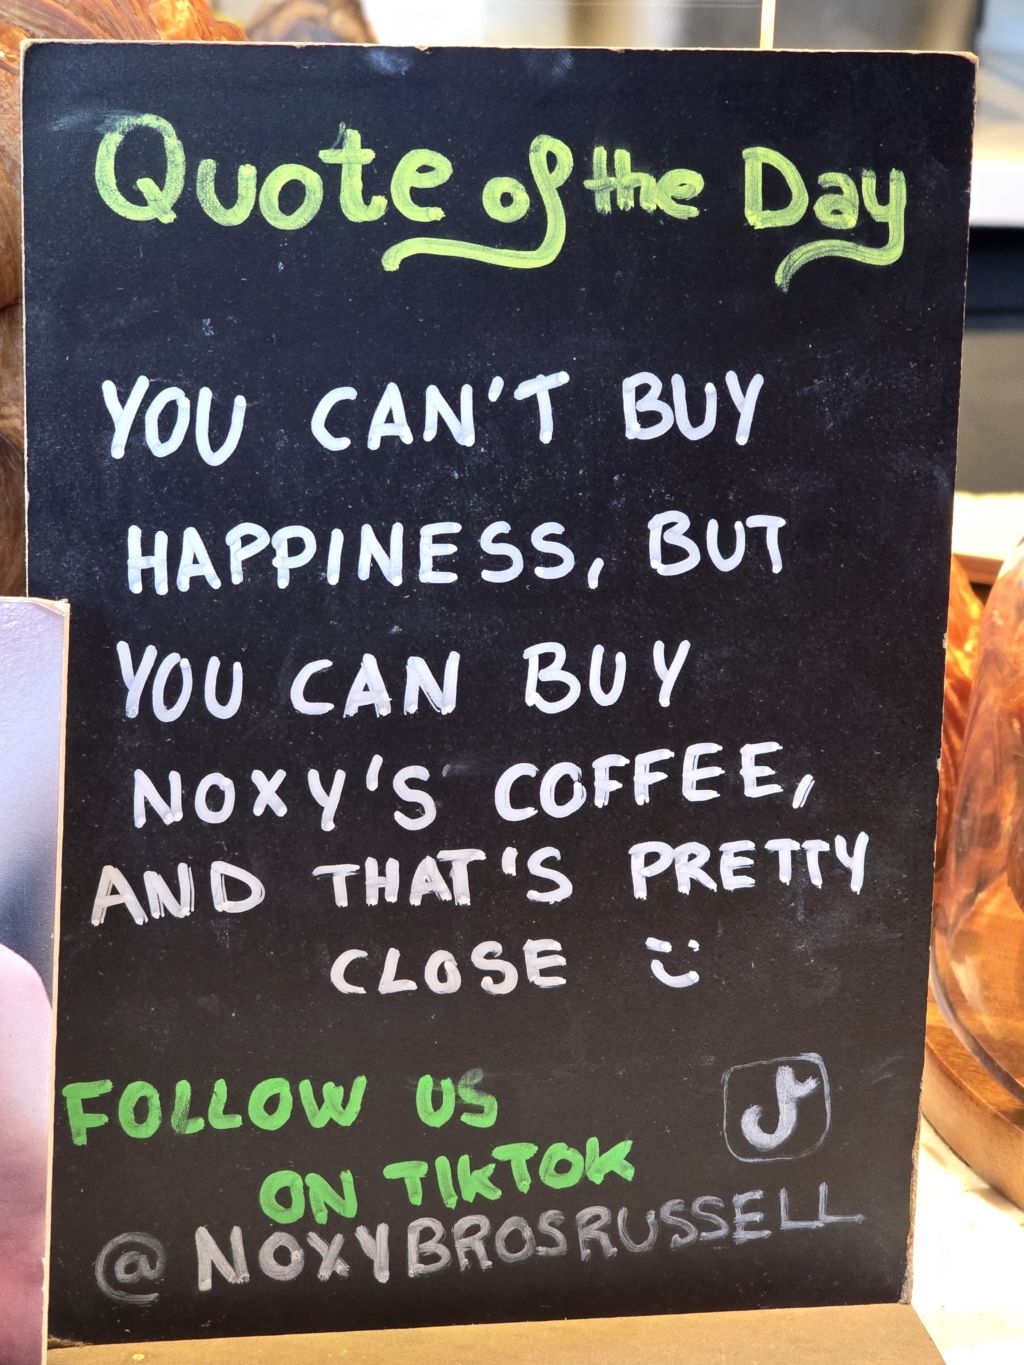 Quote of the Day
YOU CAN'T BUY
HAPPINESS, BUT
YOU CAN BUY
NOXY'S COFFEE,
AND THAT'S PRETTY
CLOSE
FOLLOW US
ON TIKTOK
@NOXYBROSRUSSELL